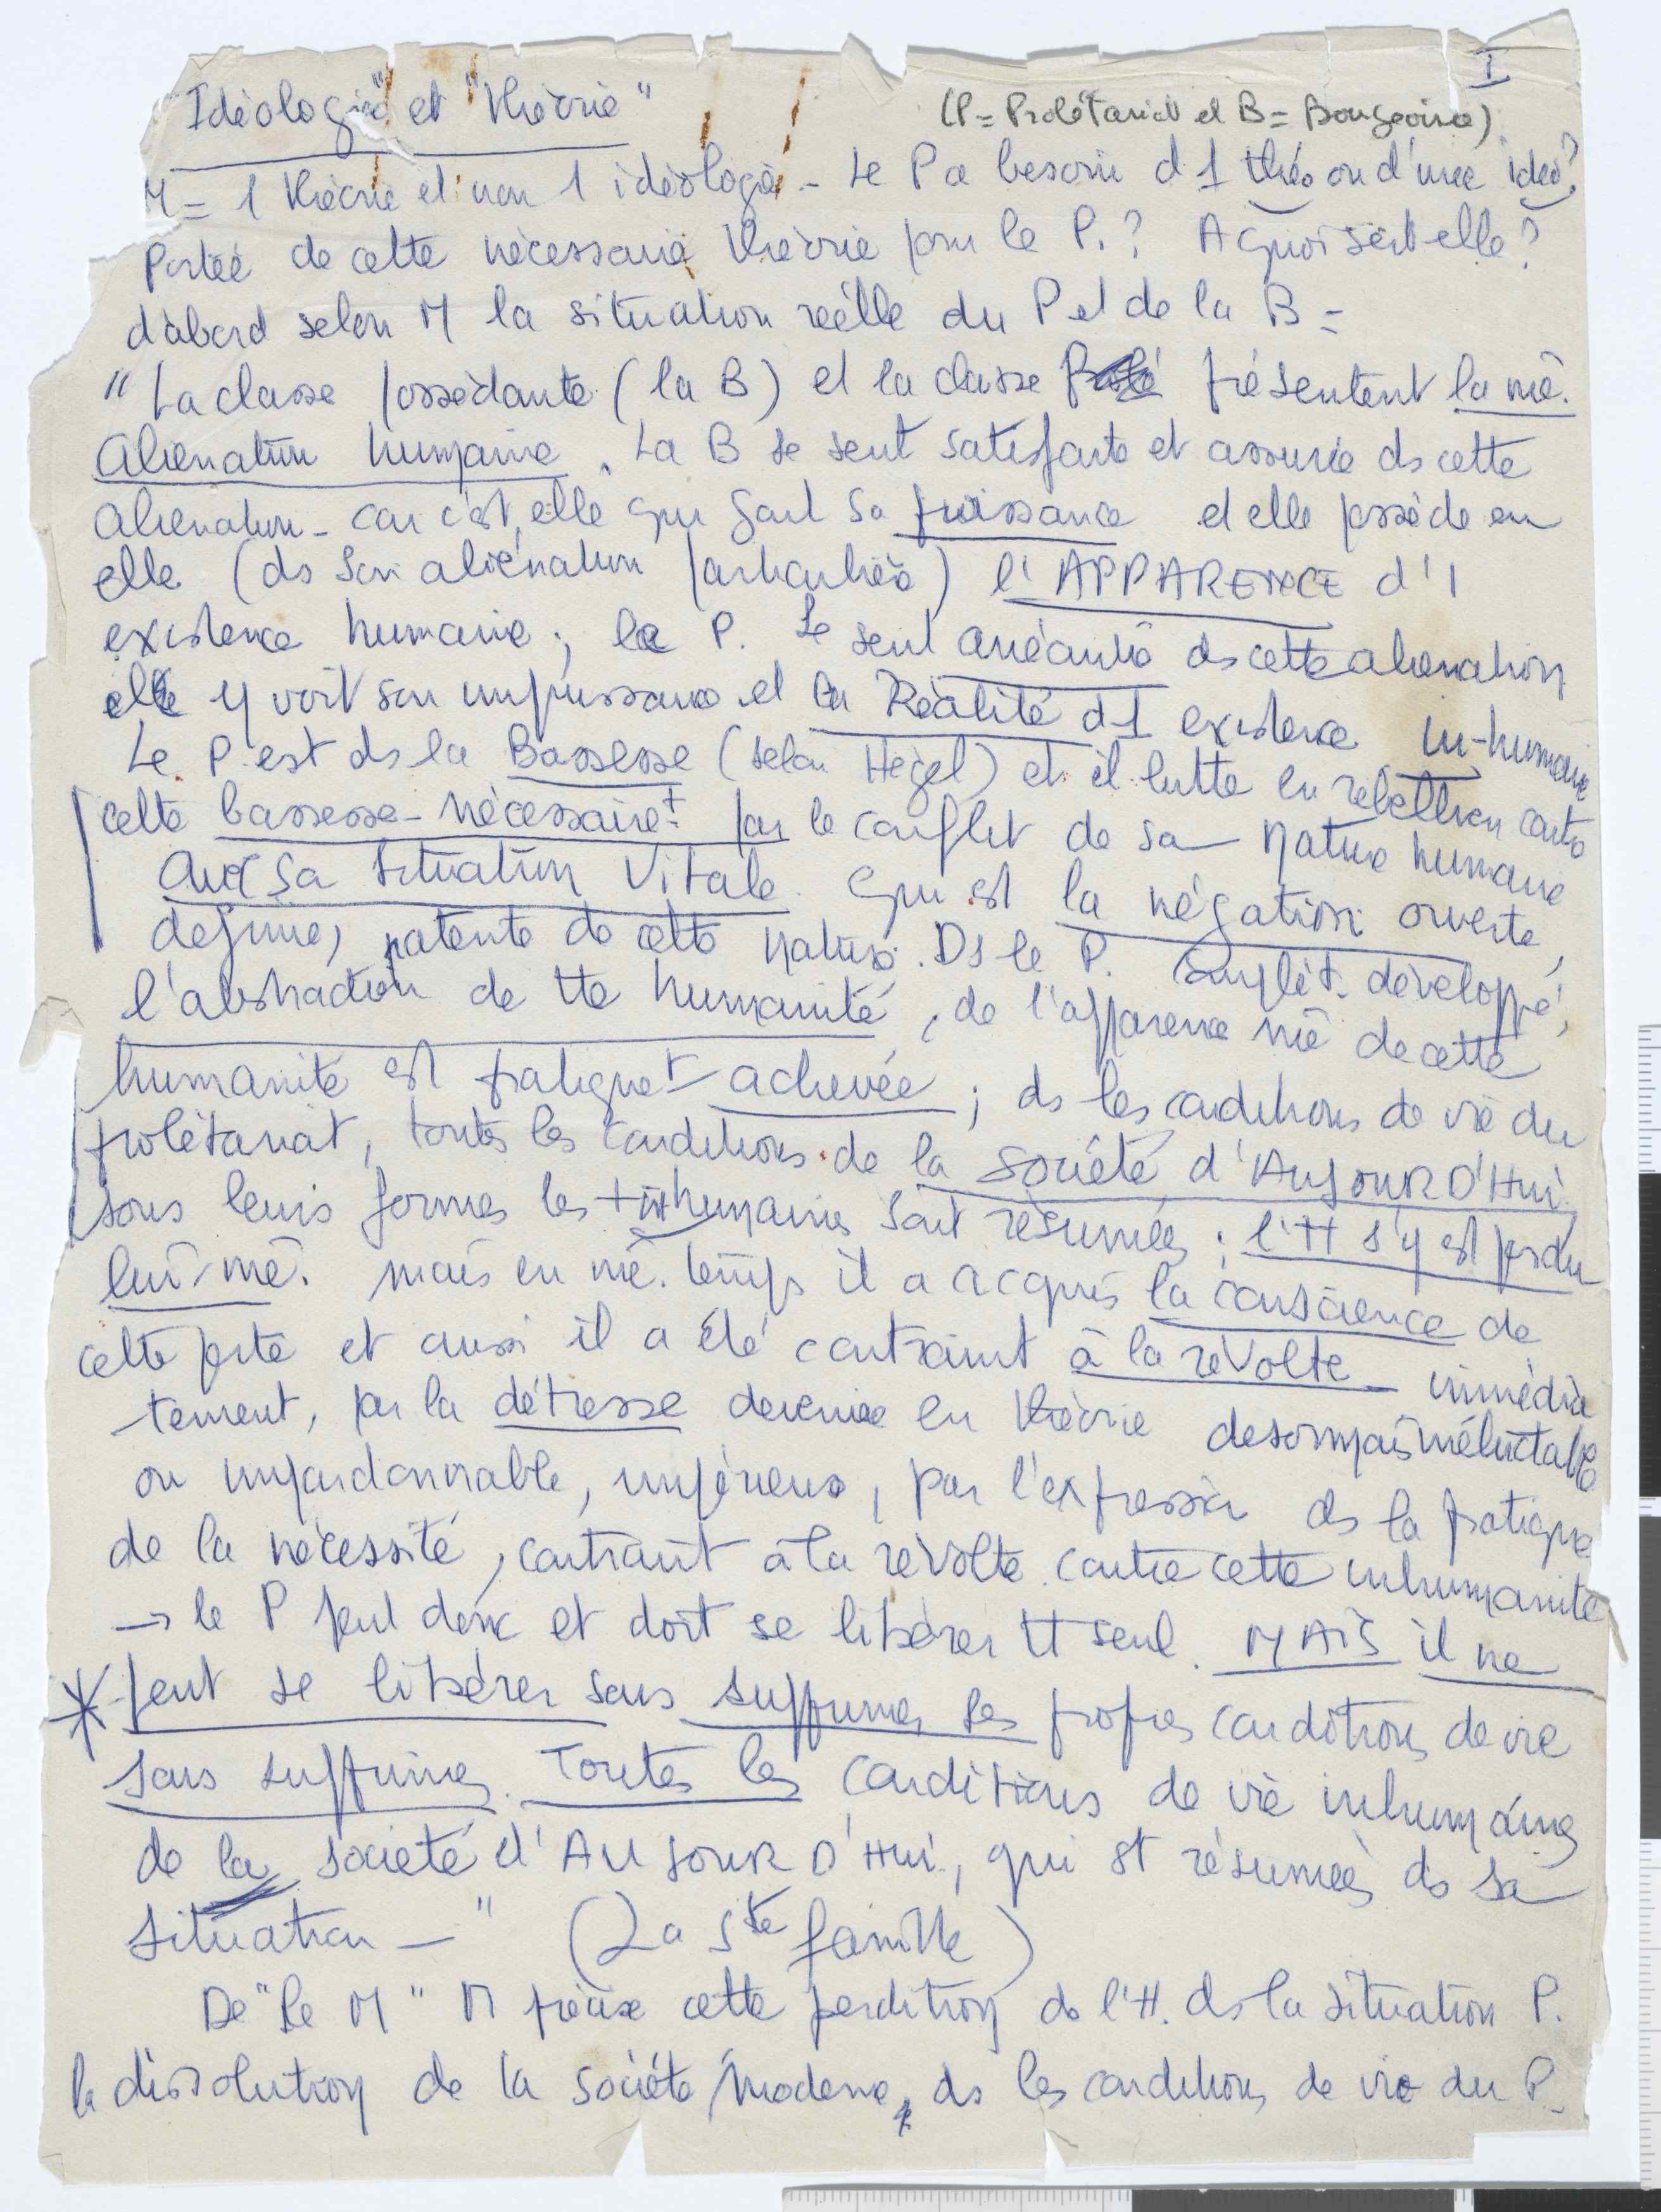 I
"Idéologie" et "théorie"
(P = Prolétariat et B = Bourgeoisie)
M = 1 théorie et non 1 idéologie - Le P a besoin d 1 théo ou d'une idéo?
Portée de cette nécessaire théorie pour le P.? A quoi sert elle?
d'abord selon M la situation réelle du P et de la B =
"La classe possédante (la B) et la classe présentent la mê.
aliénation humaine. La B se sent satisfaite et assurée ds cette
aliénation - car c'est elle qui fait sa puissance et elle possède en
elle (ds son aliénation particulière) l'APPARENCE d'1
existence humaine; le P. se sent anéantie ds cette aliénation
elle y voit son impuissance et la Réalité d1 existence in-humaine
Le P est ds la Bassesse (selon Hegel) et il lutte en rebellion contre
cette bassesse - nécessairet par le conflit de sa nature humaine
avec sa situation vitale qui est la négation ouverte,
définie, patente de cette nature. Ds le P. complèt. développé,
l'abstraction de tte humanité, de l'apparence mê de cette
humanité est pratiquet achevée; ds les conditions de vie du
prolétariat, toutes les conditions de la société d'AUJOURD'Hui
sous leurs formes les + inhumaines sont résumées; l'H s'y est perdu
lui-mê. mais en mê. temps il a acquis la conscience de
cette perte et aussi il a été contraint à la révolte immédia
-tement, par la détresse devenue en théorie désormais inéluctable
ou impardonnable, impérieuse, par l'expression ds la pratique
de la nécessité, contraint à la révolte contre cette inhumanité
→ le P peut donc et doit se libérer tt seul. MAIS il ne
* peut se libérer sans supprimer ses propres conditions de vie
sans supprimer Toutes les conditions de vie inhumaines
de la société d'AUJOURD'Hui, qui st résumées ds sa
situation - " (La Ste famille)
De "le M" M précise cette perdition de l'H. ds la situation P.
la dissolution de la société moderne, ds les conditions de vie du P.